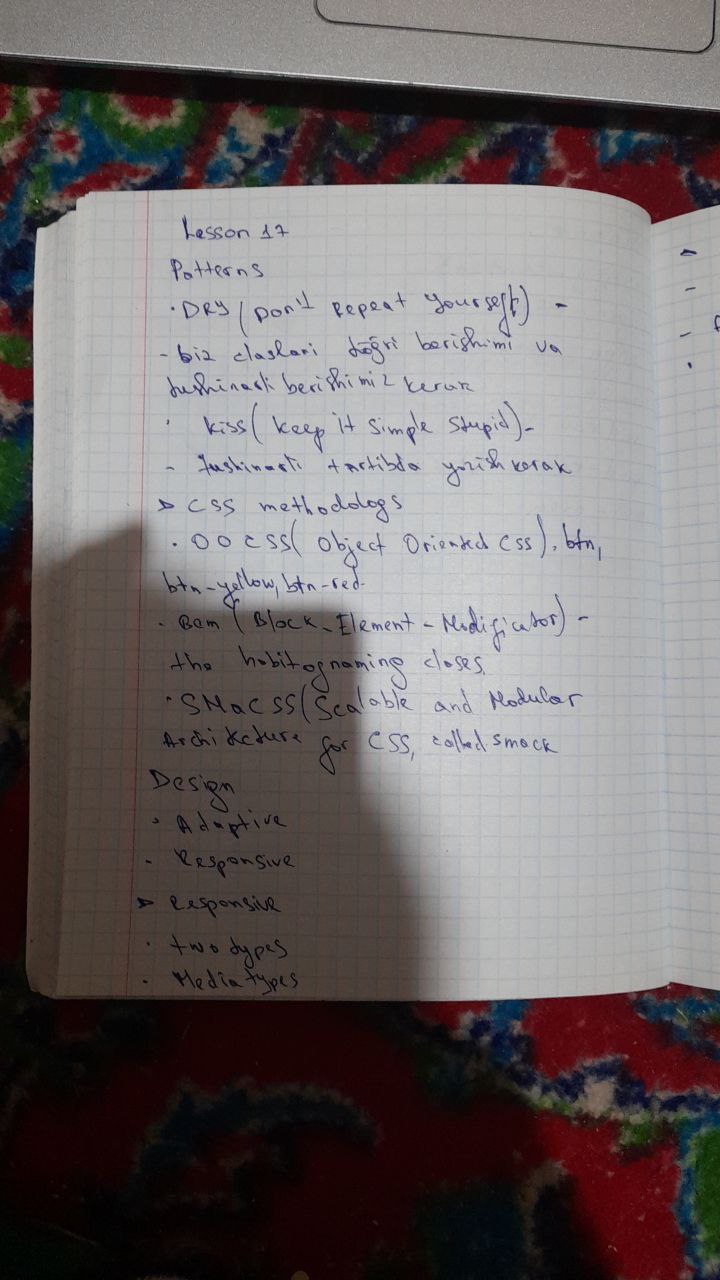 Lesson 17
Patterns
· DRY (Don't Repeat Yourself) -
- biz classlari tŏğri berishimi va
tushinarli berishimiz kerak
· kiss (keep it simple stupid) -
- tushinarli tartibda yozish kerak
CSS methodologs
· OOCSS (Object Oriented CSS), btn,
btn-yellow, btn-red.
· Bem (Block-Element-Modificator) -
the closes.
· SMaCSS (Scalable and Modular
Architecture for CSS, called smack
Design
· Adaptive
· Responsive
Responsive
· two types
· Media types